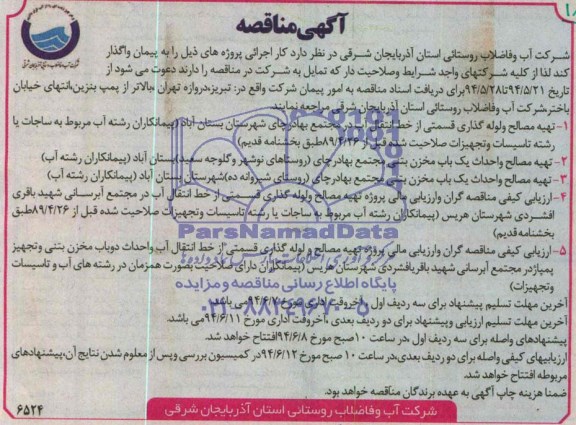 آگهی مناقصه
شرکت آب وفاضلاب روستائی استان آذربایجان شرقی در نظر دارد کار اجرائی پروژه های ذیل را به پیمان واگذار
کند لذا از کلیه شرکتهای واجد شرایط وصلاحیت دار که تمایل به شرکت در مناقصه را دارند دعوت می شود از
تاریخ ۹۴/۵/۲۱تا۹۴/۵/۲۸برای دریافت اسناد مناقصه به امور پیمان شرکت واقع در: تبریز،دروازه تهران ،بالاتر از پمپ بنزین،انتهای خیابان
باختر،شرکت آب وفاضلاب روستائی استان آذربایجان شرقی مراجعه نمایند.
۱- تهیه مصالح ولوله گذاری قسمتی از خط انتقال آب در مجتمع بهادرچای شهرستان بستان آباد (پیمانکاران رشته آب مربوط به ساجات یا
رشته تاسیسات وتجهیزات صلاحیت شده قبل از ۸۹/۴/۲۶طبق بخشنامه قدیم)
۲- تهیه مصالح واحداث یک باب مخزن بتنی مجتمع بهادرچای (روستاهای نوشهر وگلوجه سعید)بستان آباد (پیمانکاران رشته آب)
۳- تهیه مصالح واحداث یک باب مخزن بتنی مجتمع بهادرچای (روستای شیروانه ده)شهرستان بستان آباد (پیمانکاران رشته آب)
۴- ارزیابی کیفی مناقصه گران وارزیابی مالی پروژه تهیه مصالح ولوله گذاری قسمتی از خط انتقال آب در مجتمع آبرسانی شهید باقری
افشردی شهرستان هریس (پیمانکاران رشته آب مربوط به ساجات یا رشته تاسیسات وتجهیزات صلاحیت شده قبل از ۸۹/۴/۲۶طبق
بخشنامه قدیم)
۵- ارزیابی کیفی مناقصه گران وارزیابی مالی پروژه تهیه مصالح ولوله گذاری قسمتی از خط انتقال آب واحداث دوباب مخزن بتنی وتجهیز
پمپاژدر مجتمع آبرسانی شهید باقریافشردی شهرستان هریس (پیمانکاران دارای صلاحیت بصورت همزمان در رشته های آب و تاسیسات
وتجهیزات)
آخرین مهلت تسلیم پیشنهاد برای سه ردیف اول ،آخروقت اداری مورخ ۹۴/۶/۷ می باشد.
آخرین مهلت تسلیم ارزیابی وپیشنهاد برای دو ردیف بعدی ،آخروقت اداری مورخ ۹۴/۶/۱۱ می باشد.
پیشنهادهای واصله برای سه ردیف اول ،در ساعت ۱۰صبح مورخ ۹۴/۶/۸افتتاح خواهد شد.
ارزیابیهای کیفی واصله برای دو ردیف بعدی،در ساعت ۱۰ صبح مورخ ۹۴/۶/۱۲در کمیسیون بررسی وپس از معلوم شدن نتایج آن،پیشنهادهای
مربوطه افتتاح خواهد شد.
ضمنا هزینه چاپ آگهی به عهده برندگان مناقصه خواهد بود.
شرکت آب وفاضلاب روستائی استان آذربایجان شرقی
۶۵۲۴
ParsNamadData
پایگاه اطلاع رسانی مناقصه و مزایده
۰۲۱-۸۸۳۴۹۶۷۰-۵